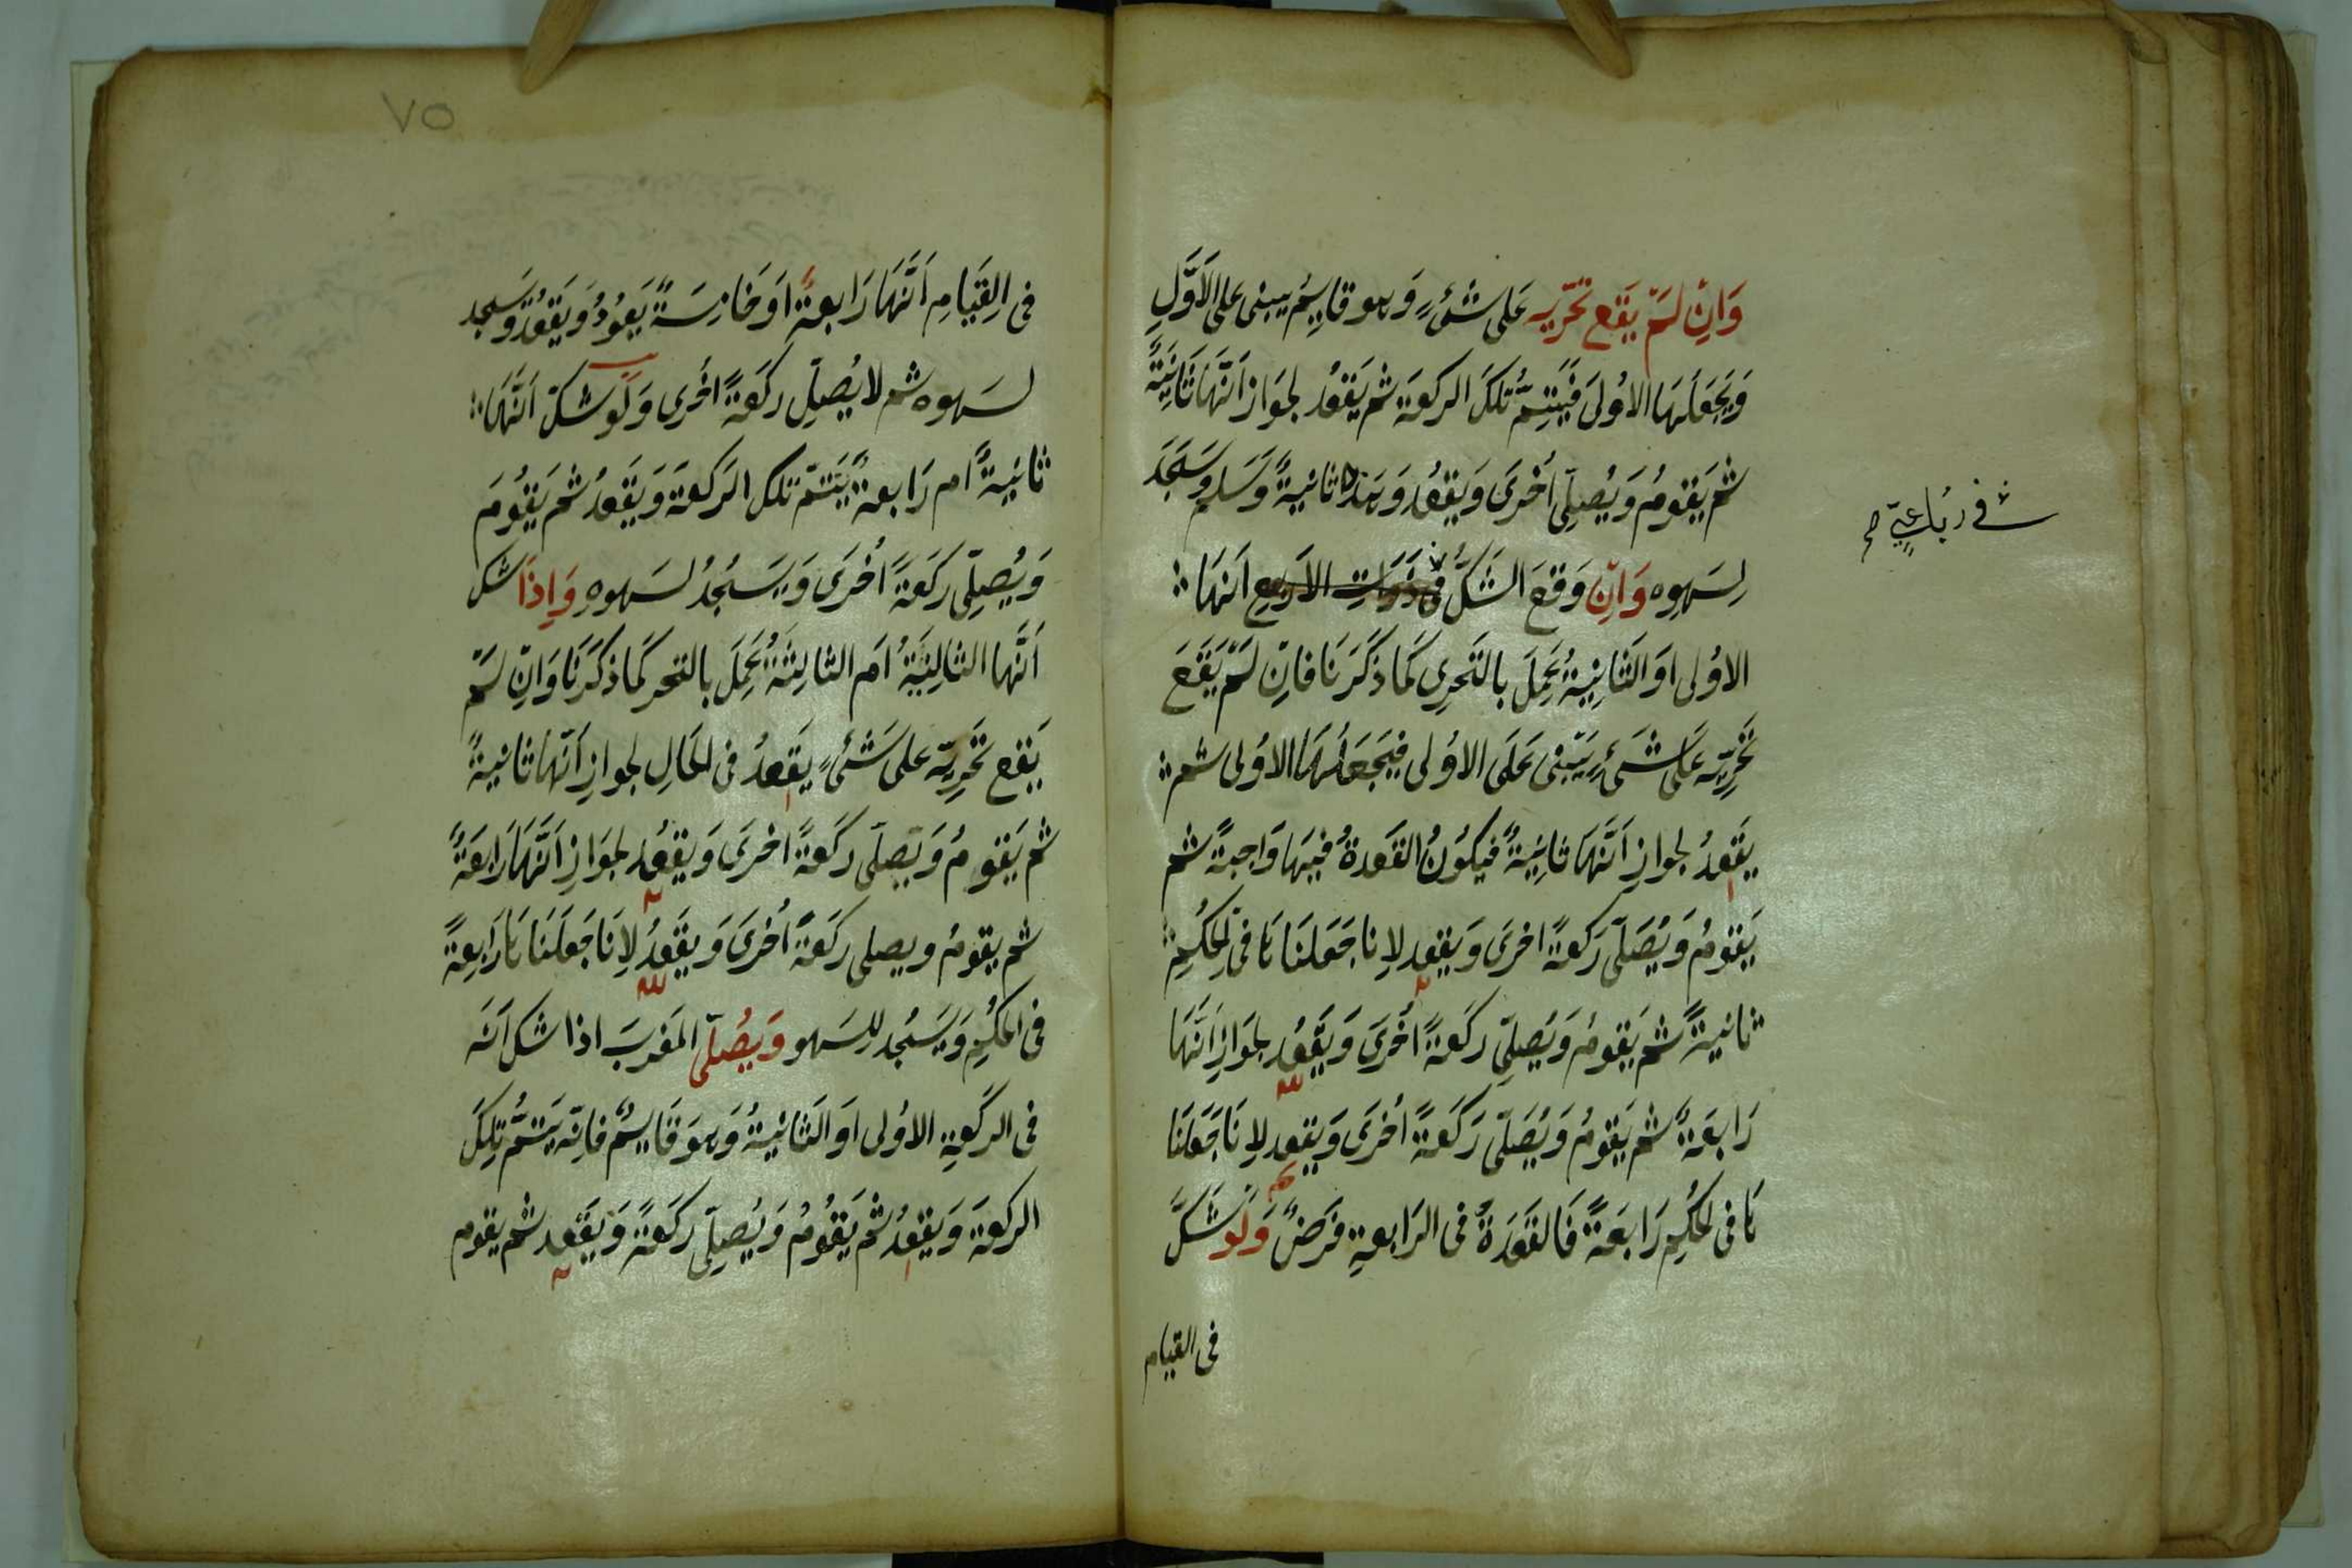 وَاِنْ لَمْ يَقَع تَحَرّيه عَلى شَئٍ وَهو قايِمٌ يبنى على الاَوَّلِ
وَيَجَعَلهَا الاوُلىَ فَيُتِمُّ تلكَ الركعَة ثم يَقعُد لجوَاز اَنَّهَا ثَانِيَةً
ثم يَقومُ وَيُصلِّى اُخرَى وَيقعُد وَهَذه ثانيَةً وَسَلم وَسَجَدَ
لِسَهوِه وَاِنْ وَقعَ الشَكُّ فى ذَوَاتِ الاَربعِ اَنهَا
فى رُباعيّةٍ صح
الاوُلى اوَ الثَانِيَةُ عَمِلَ بالتَحرِى كَمَا ذكَرَنَا فاِنْ لَمْ يَقَعَ
تَحَرِيّه عَلَى شَىءٍ يَبْنى عَلَى الاوُلى فيَجَعَلهَا الاوُلى ثم
يقَعِدُ لجوازِ اَنَّهَا ثانِيَةً فيكوُنُ القعَدةُ فيهَا وَاجبَةً ثم
يَقومُ وَيُصَلّى ركعَةً اخرىَ وَيقعد لاِنا جَعَلنَا هَا فى الحكُمِ
ثانيَةً ثم يَقومُ وَيُصلّى ركعَةً اُخَرىَ وَيَقعُد لجوَازِ اَنَّهَا
رَابعَةً ثم يَقومُ وَيُصَلّى رَكعَةً اُخرىَ وَيقعد لاِنَا جَعَلنَا
هَا فى الحكُمِ رَابعَةً فَالقَعَدَةُ فى الرَابعةِ فرَضٌ وَلوَ شَكَّ
فى القيام
٧٥
فى القِيَامِ اَنَّهَا رَابعة اوَ خَامِسَةً يَعوُدُ وَيَقعُدُ وَسَجد
لسَهوه ثم لا يُصلِّ ركَعَةً اُخَرى وَلَو شكّ اَنَّهَا
ثانيَةً ام رَابعةً يُتمّ تلك الرَكعَة وَيَقعدُ ثم يَقوُمَ
وَيُصلِّى ركَعَةً اُخرَى وَيَسَجُدُ لسَهوهِ وَاِذَا شك
اَنَّهَا الثانِيَةُ امَ الثالِثَةُ عَمِلَ بالتحر كَمَا ذكَرَنَا وَاِنْ لَمْ
يَقع تَحَرِيّه على شَئٍ يَقَعدُ فى الحَالِ لجوازِ اَنّهَا ثانيةً
ثم يَقومُ وَيُصلّى ركَعَةً اخرَى وَيقعُد لجوَازِ اَنَّهَا رَابعَةً
ثم يقومُ ويصلى ركَعَةً اُخرىَ وَيقَعدُ لاِنَا جَعلَنَا هَا رَابِعَةً
فى الحكُمِ وَيَسَجُد للِسَهو وَيصُلّى المَغربَ اذا شك اَنَه
فى الركَعَةِ الاوُلى اوَ الثَانيَةُ وَهوَ قَايِمٌ فاِنّه يَتمُّ تلِكَ
الركعَةَ وَيقعدُ ثم يَقوُمُ وَيُصلِّى ركَعَةً وَيَقَعد ثم يقوم